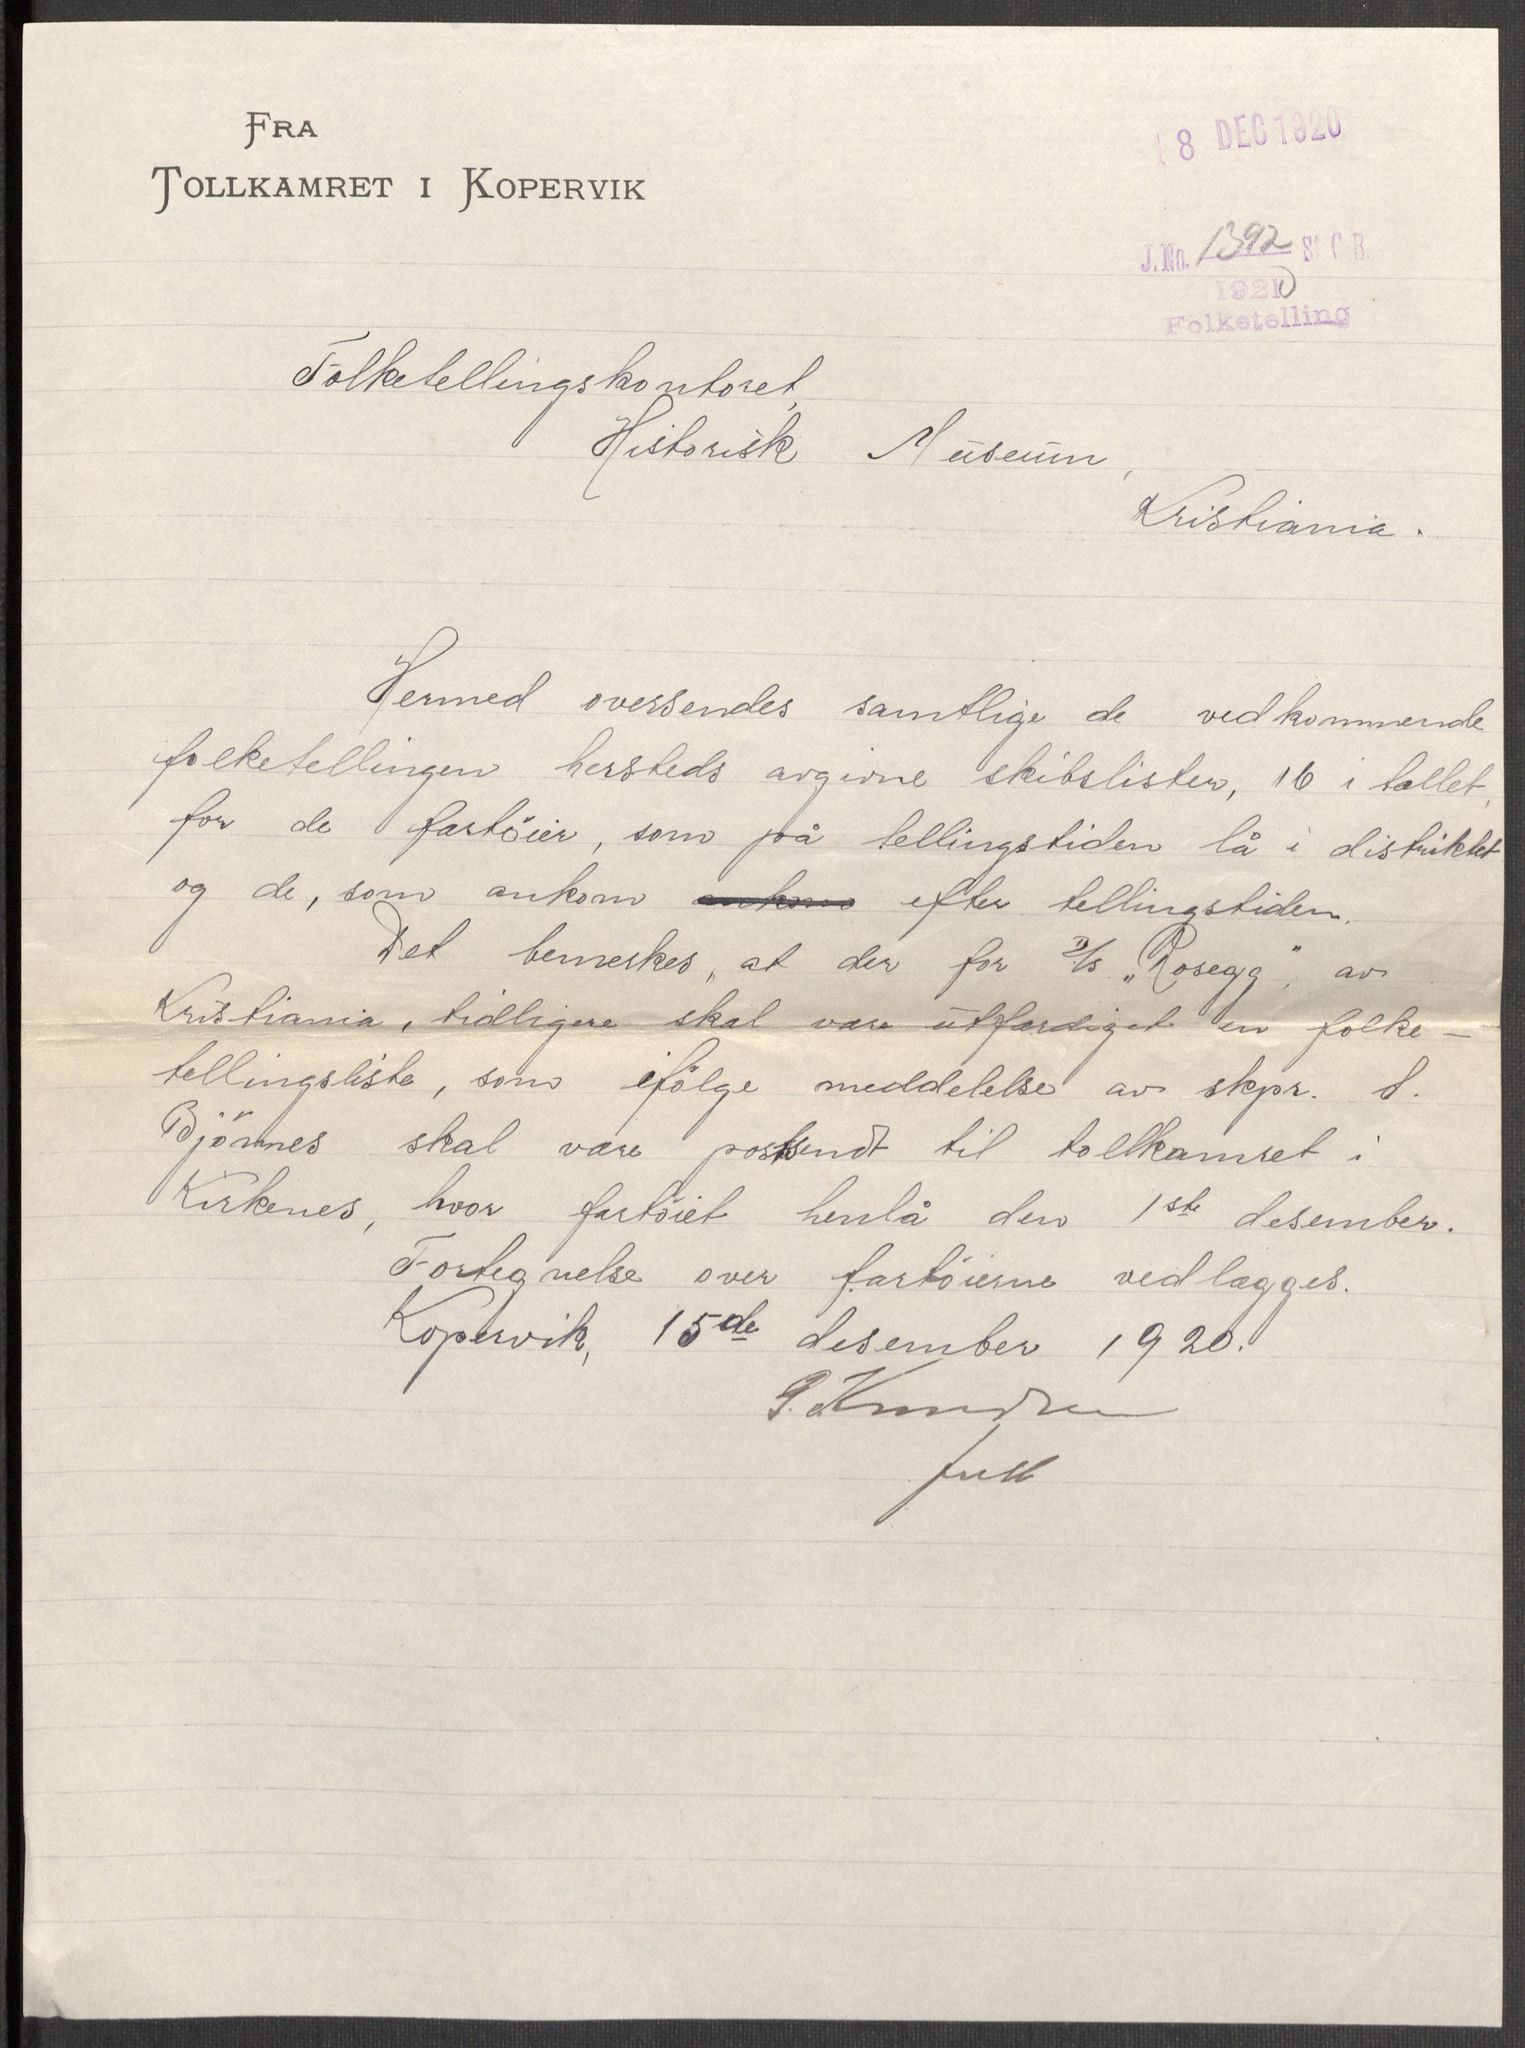 FRA
TOLLKAMRET I KOPERVIK
18 DEC 1920
J.No. 1392 St C B.
1920
Folketelling
Folketellingskontoret,
Historisk Museum,
Kristiania.
Hermed oversendes samtlige de vedkommende
folketellingen hersteds avgivne skibslister, 16 i tallet,
for de fartöier, som på tellingstiden lå i distriktet
og de, som ankom ankom efter tellingstiden.
Det bemerkes, at der for D/S „Rosegg", av
Kristiania, tidligere skal være utfærdiget en folke-
tellingsliste, som ifölge meddelelse av skpr. S.
Björnnes skal være postsendt til tollkamret i
Kirkenes, hvor fartöiet henlå den 1ste desember.
Fortegnelse over fartöierne vedlægges.
Kopervik, 15de desember 1920.
G. Knudsen